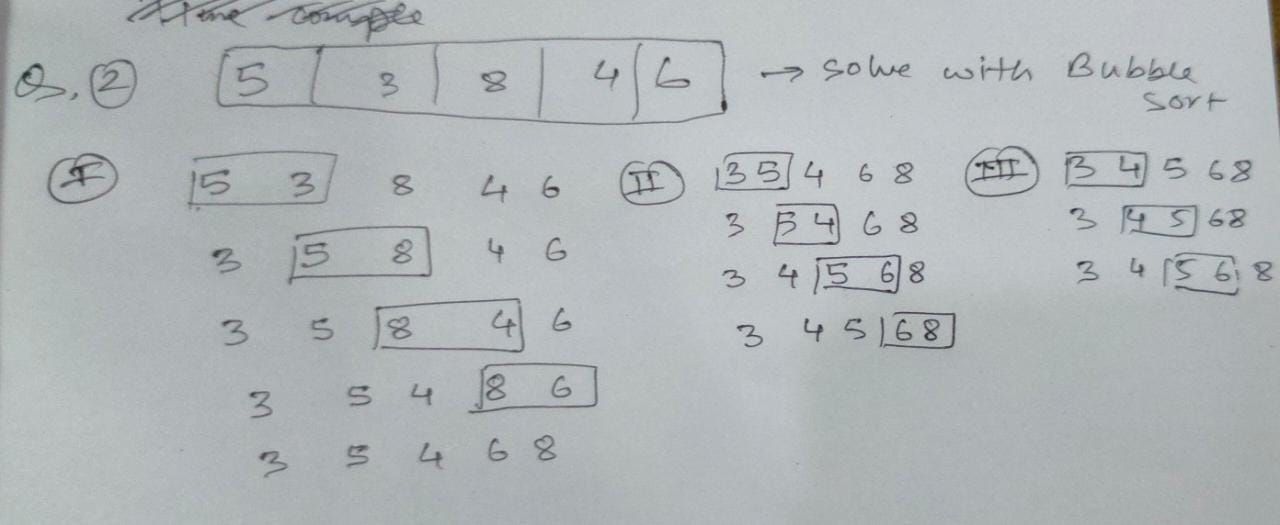 Time comple
Q. 2 5 3 8 4 6 → solve with Bubble
sort
I 5 3 8 4 6
3 5 8 4 6
3 5 8 4 6
3 5 4 8 6
3 5 4 6 8
II 3 5 4 6 8
3 5 4 6 8
3 4 5 6 8
3 4 5 6 8
III 3 4 5 6 8
3 4 5 6 8
3 4 5 6 8